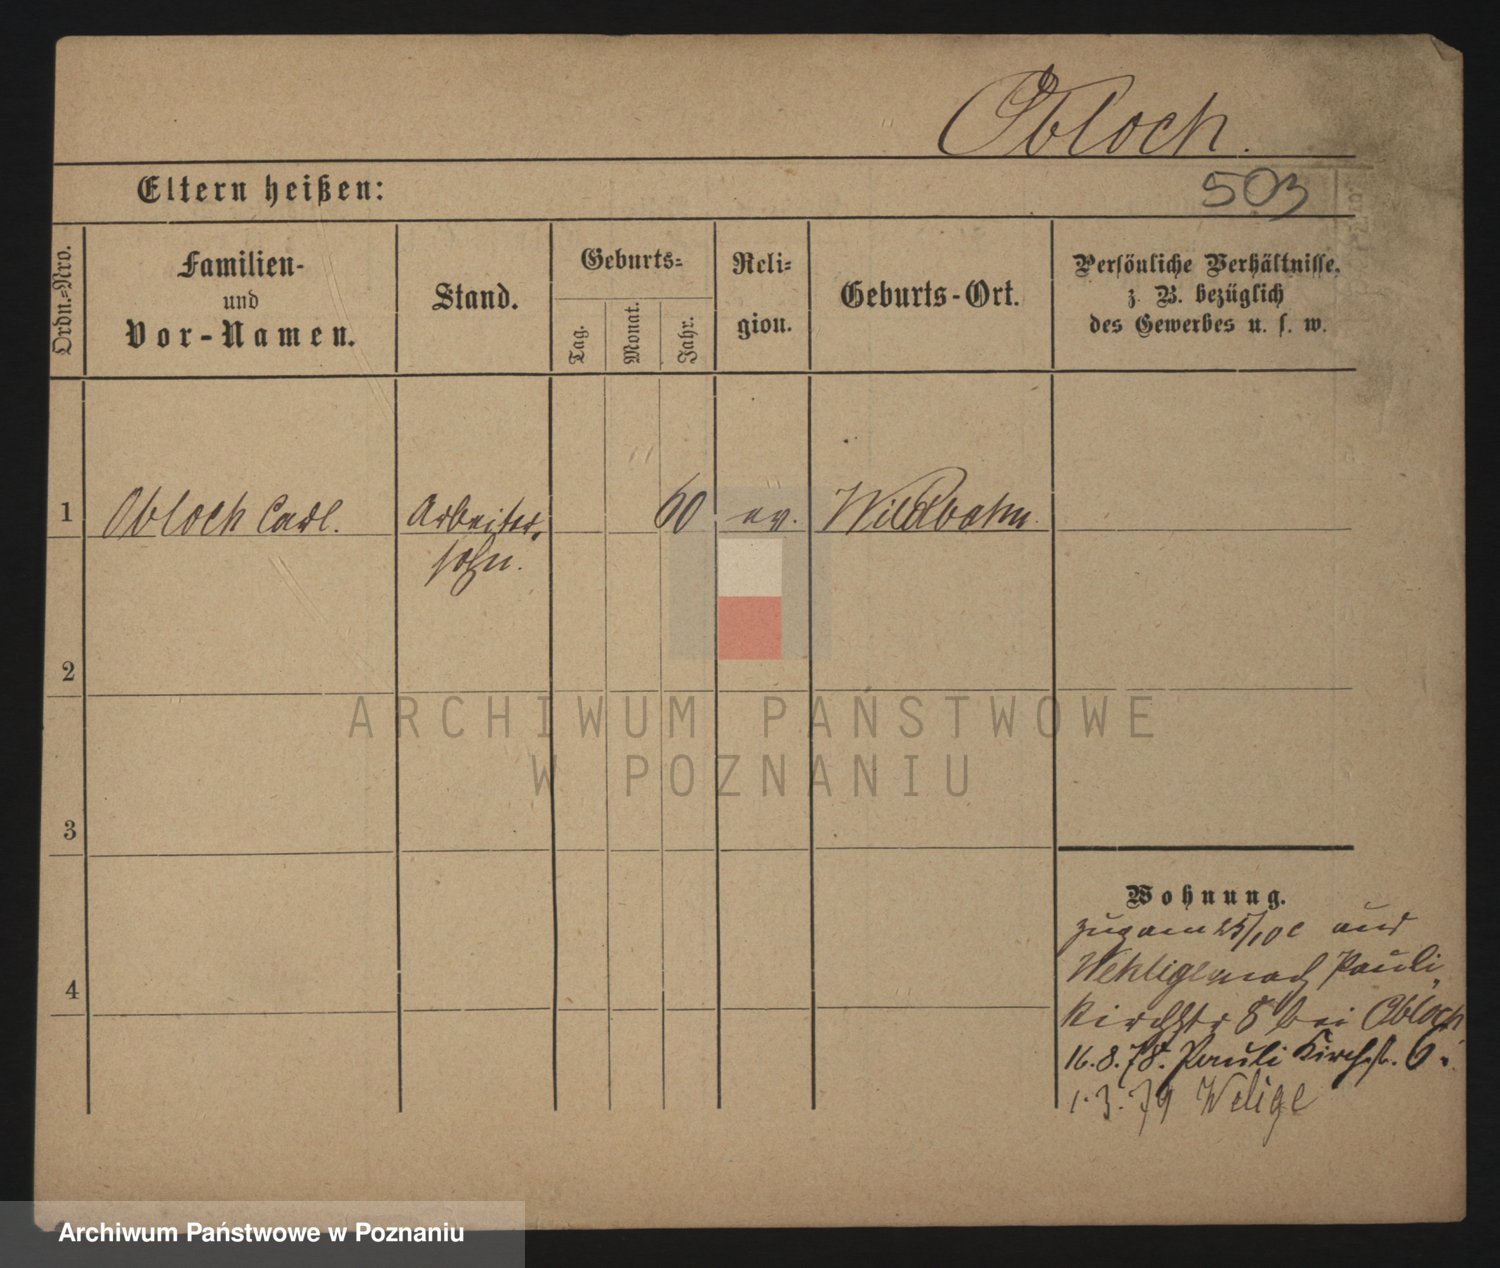 Obloch.
Eltern heißen:
503
Ordn.=Nro.
Familien-
und
Vor-Namen.
Stand.
Geburts=
Tag.
Monat.
Jahr.
Reli=
gion.
Geburts-Ort.
Persönliche Verhältnisse,
z. B. bezüglich
des Gewerbes u. s. w.
1 Obloch Carl. Arbeiter, 60 ev. Wildbahn
sohn.
2
ARCHIWUM PAŃSTWOWE
W POZNANIU
3
Wohnung.
zug am 25/10 c aus
nach Pauli
4
Kirchstr 8 bei Obloch
16.8.78. Pauli Kirchstr. 6.
1.3.79
Archiwum Państwowe w Poznaniu